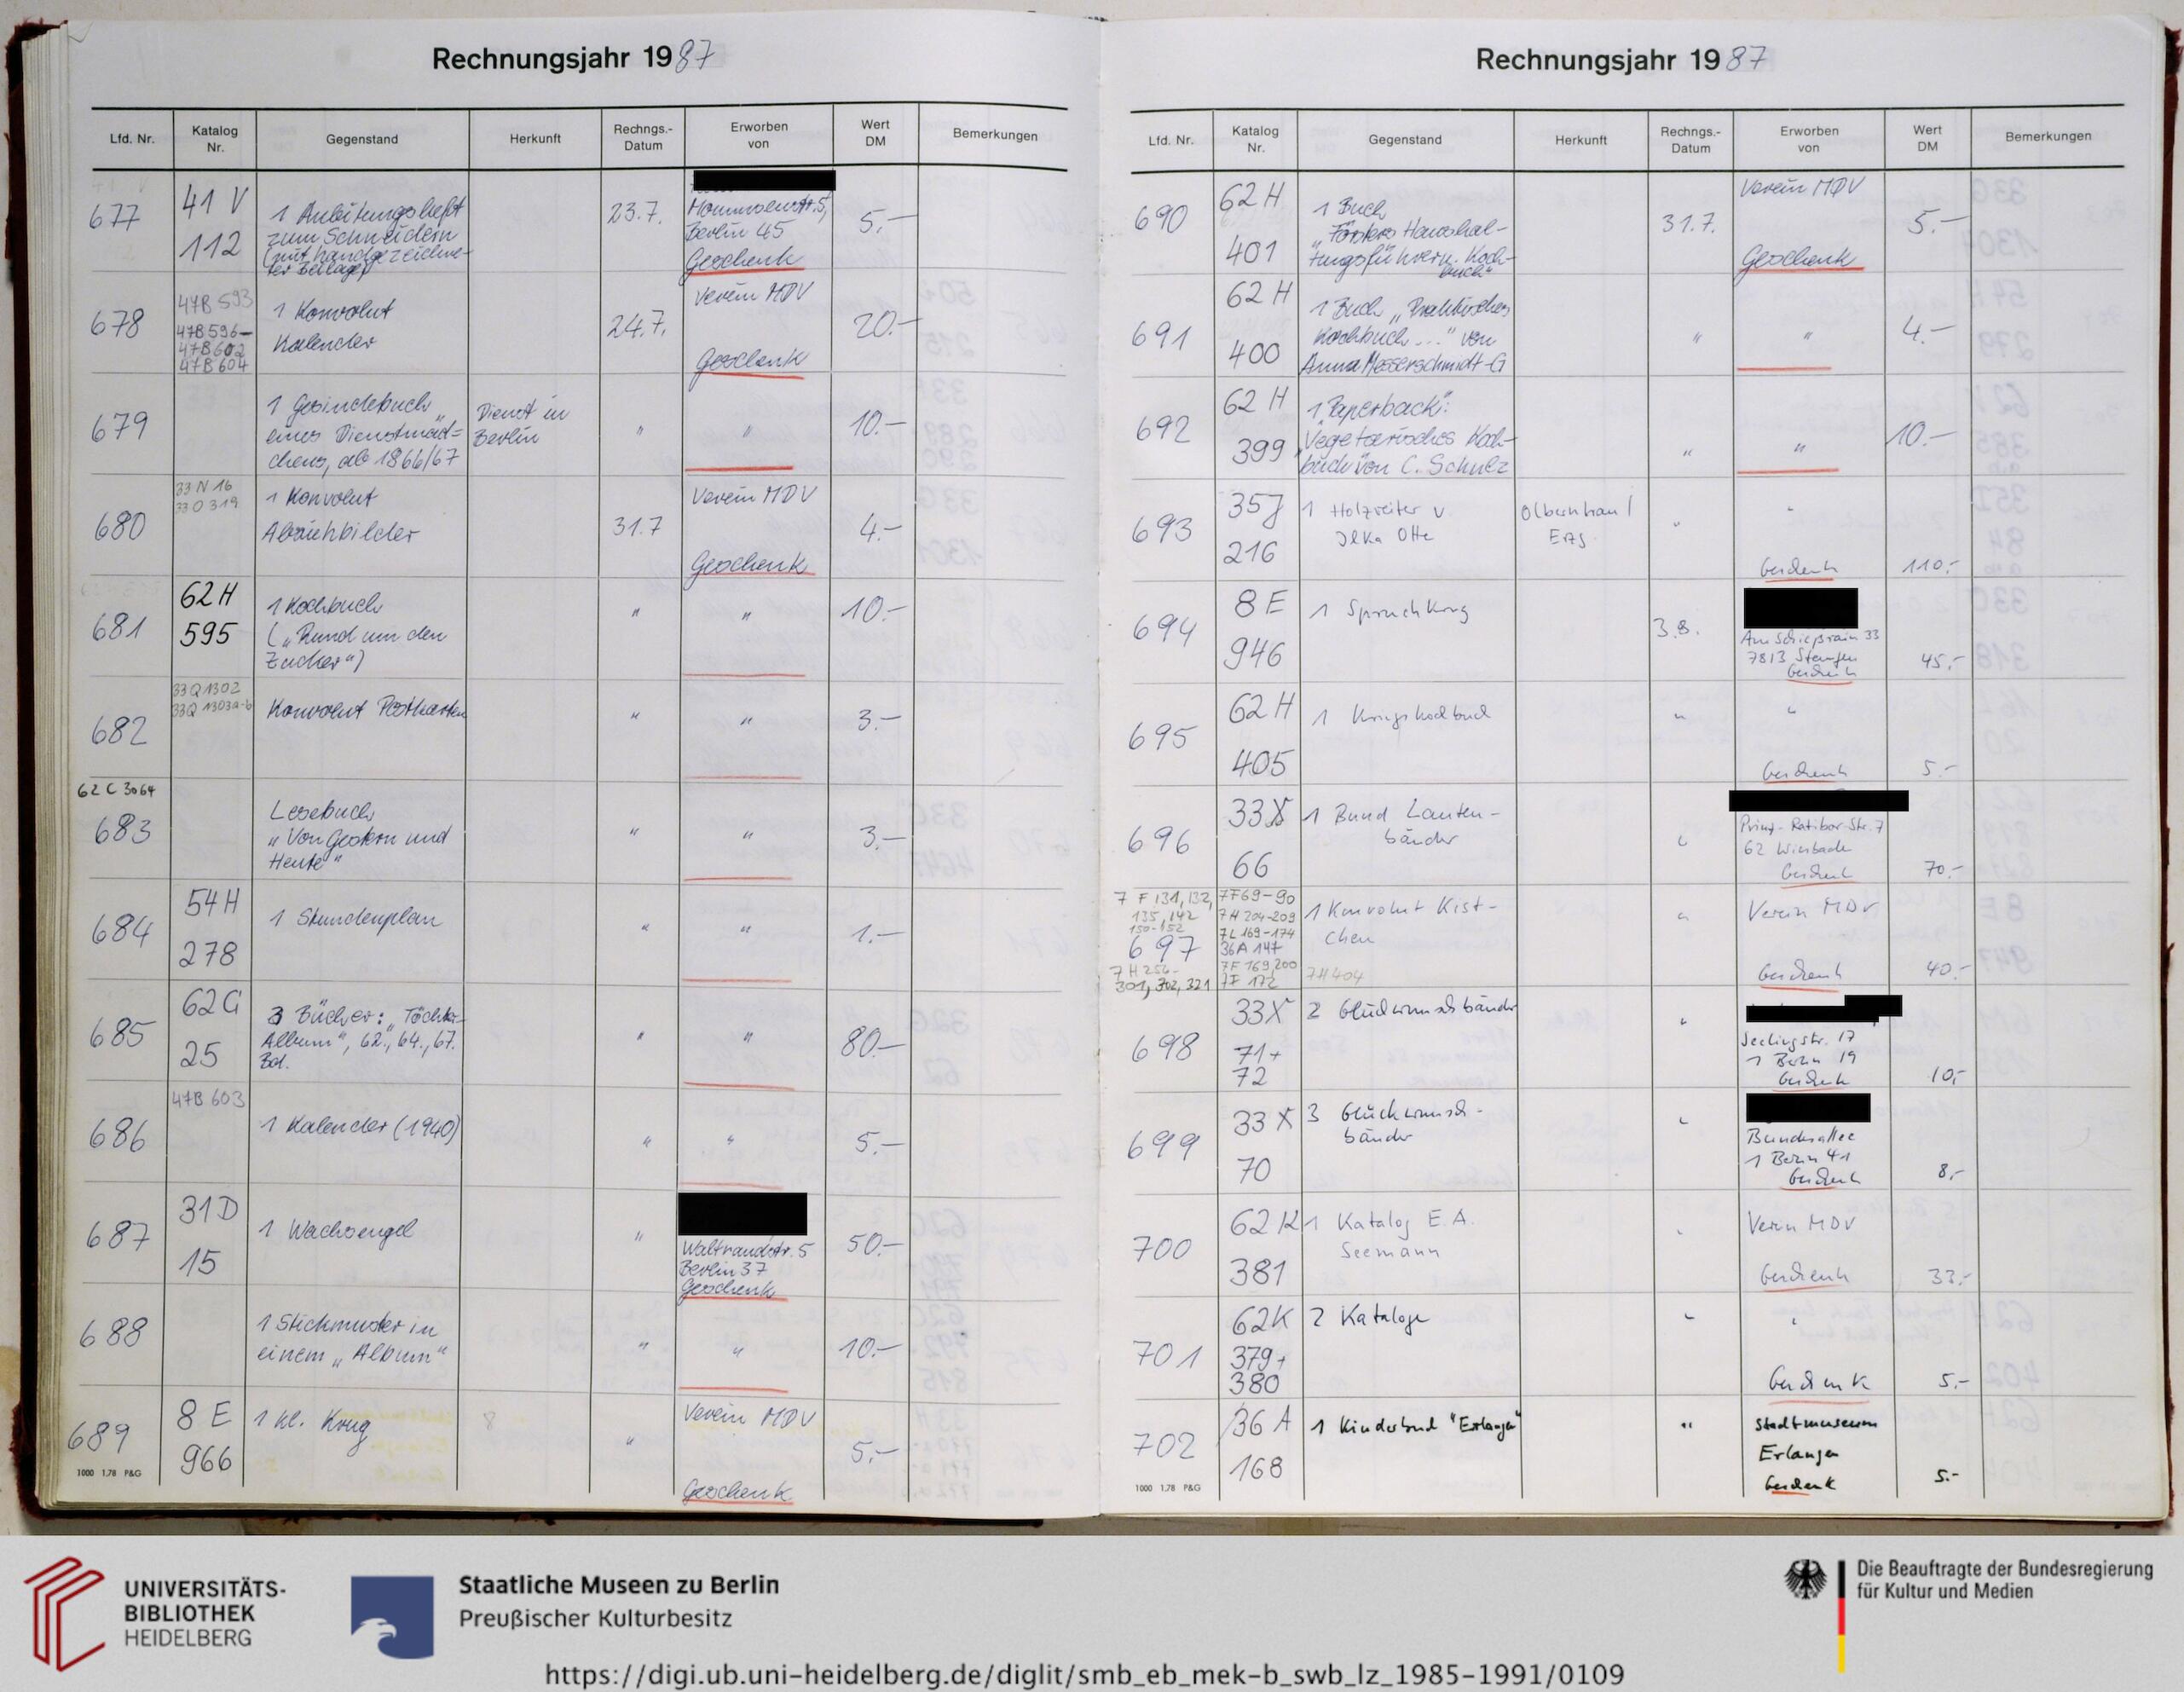 Rechnungsjahr 1987
Lfd. Nr.
Katalog Nr.
Gegenstand
Herkunft
Rechngs.-Datum
Erworben von
Wert DM
Bemerkungen
677
41 V
112
1 Anleitungsheft
zum Schneidern
(mit handgezeichne-
ter Beilage)
23.7.
Mommsenstr. 5,
Berlin 45
Geschenk
5,-
678
47B 593
47B 596-
47B 602
47B 604
1 Konvolut
Kalender
24.7.
Verein MDV
Geschenk
20.-
679
1 Gesindebuch
eines Dienstmäd=
chens, ab 1866/67
Dienst in
Berlin
"
"
10.-
680
33 N 16
33 O 319
1 Konvolut
Abziehbilder
31.7
Verein MDV
Geschenk
4.-
681
62 H
595
1 Kochbuch
(„Rund um den
Zucker")
"
"
10.-
682
33 Q 1302
33Q 1303a-b
Konvolut Postkarten
"
"
3.-
62 C 3064
683
Lesebuch
„Von Gestern und
Heute"
"
"
3.-
684
54 H
278
1 Stundenplan
"
"
1.-
685
62 G
25
3 Bücher: „Töchter-
Album", 62., 64., 67.
Bd.
"
"
80.-
686
47B 603
1 Kalender (1940)
"
"
5.-
687
31 D
15
1 Wachsengel
"
Waltraudstr. 5
Berlin 37
Geschenk
50.-
688
1 Stickmuster in
einem „Album"
"
"
10.-
689
8 E
966
1 kl. Krug
8
"
Verein MDV
Geschenk
5,-
1000 1,78 P&G
Rechnungsjahr 1987
Lfd. Nr.
Katalog Nr.
Gegenstand
Herkunft
Rechngs.-Datum
Erworben von
Wert DM
Bemerkungen
690
62 H
401
1 Buch
„Försters Haushal-
tungsführer u. Koch-
buch"
31.7.
Verein MDV
Geschenk
5.-
691
62 H
400
1 Buch „Praktisches
Kochbuch ..." von
Anna Messerschmidt-G
"
"
4.-
692
62 H
399
1 „Paperback":
„Vegetarisches Koch-
buch" von C. Schulz
"
"
10.-
693
35 J
216
1 Holzreiter v.
Ilka Otte
Olbernhau /
Erzg.
"
"
Geschenk
110.-
694
8 E
946
1 Spruchkrug
3.8.
Am Schießrain 33
7813 Staufen
Geschenk
45,-
695
62 H
405
1 Kriegskochbuch
"
"
Geschenk
5.-
696
33 X
66
1 Bund Lauten-
bänder
"
Prinz-Ratibor-Str. 7
62 Wiesbaden
Geschenk
70.-
7 F 131, 132,
135, 142
150-152
697
7 H 256-
301, 302, 321
7F 69-90
7H 204-209
7L 169-174
36A 147
7F 169, 200
7F 172
1 Konvolut Kist-
chen
7H404
"
Verein MDV
Geschenk
40.-
698
33X
71+
72
2 Glückwunschbänder
"
Seelingstr. 17
1 Berlin 19
Geschenk
10,-
699
33 X
70
3 Glückwunsch-
bänder
"
Bundesallee
1 Berlin 41
Geschenk
8,-
700
62 K
381
1 Katalog E. A.
Seemann
"
Verein MDV
Geschenk
33.-
701
62K
379+
380
2 Kataloge
"
"
Geschenk
5.-
702
36 A
168
1 Kinderbuch "Erlangen"
"
Stadtmuseum
Erlangen
Geschenk
5.-
1000 1,78 P&G
UNIVERSITÄTS-
BIBLIOTHEK
HEIDELBERG
Staatliche Museen zu Berlin
Preußischer Kulturbesitz
Die Beauftragte der Bundesregierung
für Kultur und Medien
https://digi.ub.uni-heidelberg.de/diglit/smb_eb_mek-b_swb_lz_1985-1991/0109